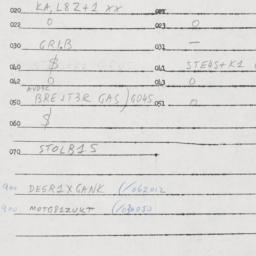 020 KA,L8Z+1 XX
022 0 023 0
030 GRLB 031 —
040 $ 041 STE4S+K1
042 0 043 0
050 BREJT3R GAS)6045 051 0
060 $
070 STOLB15
900 DEGR1XGANK (/062012
900 MOTGB1ZUKT (/030050